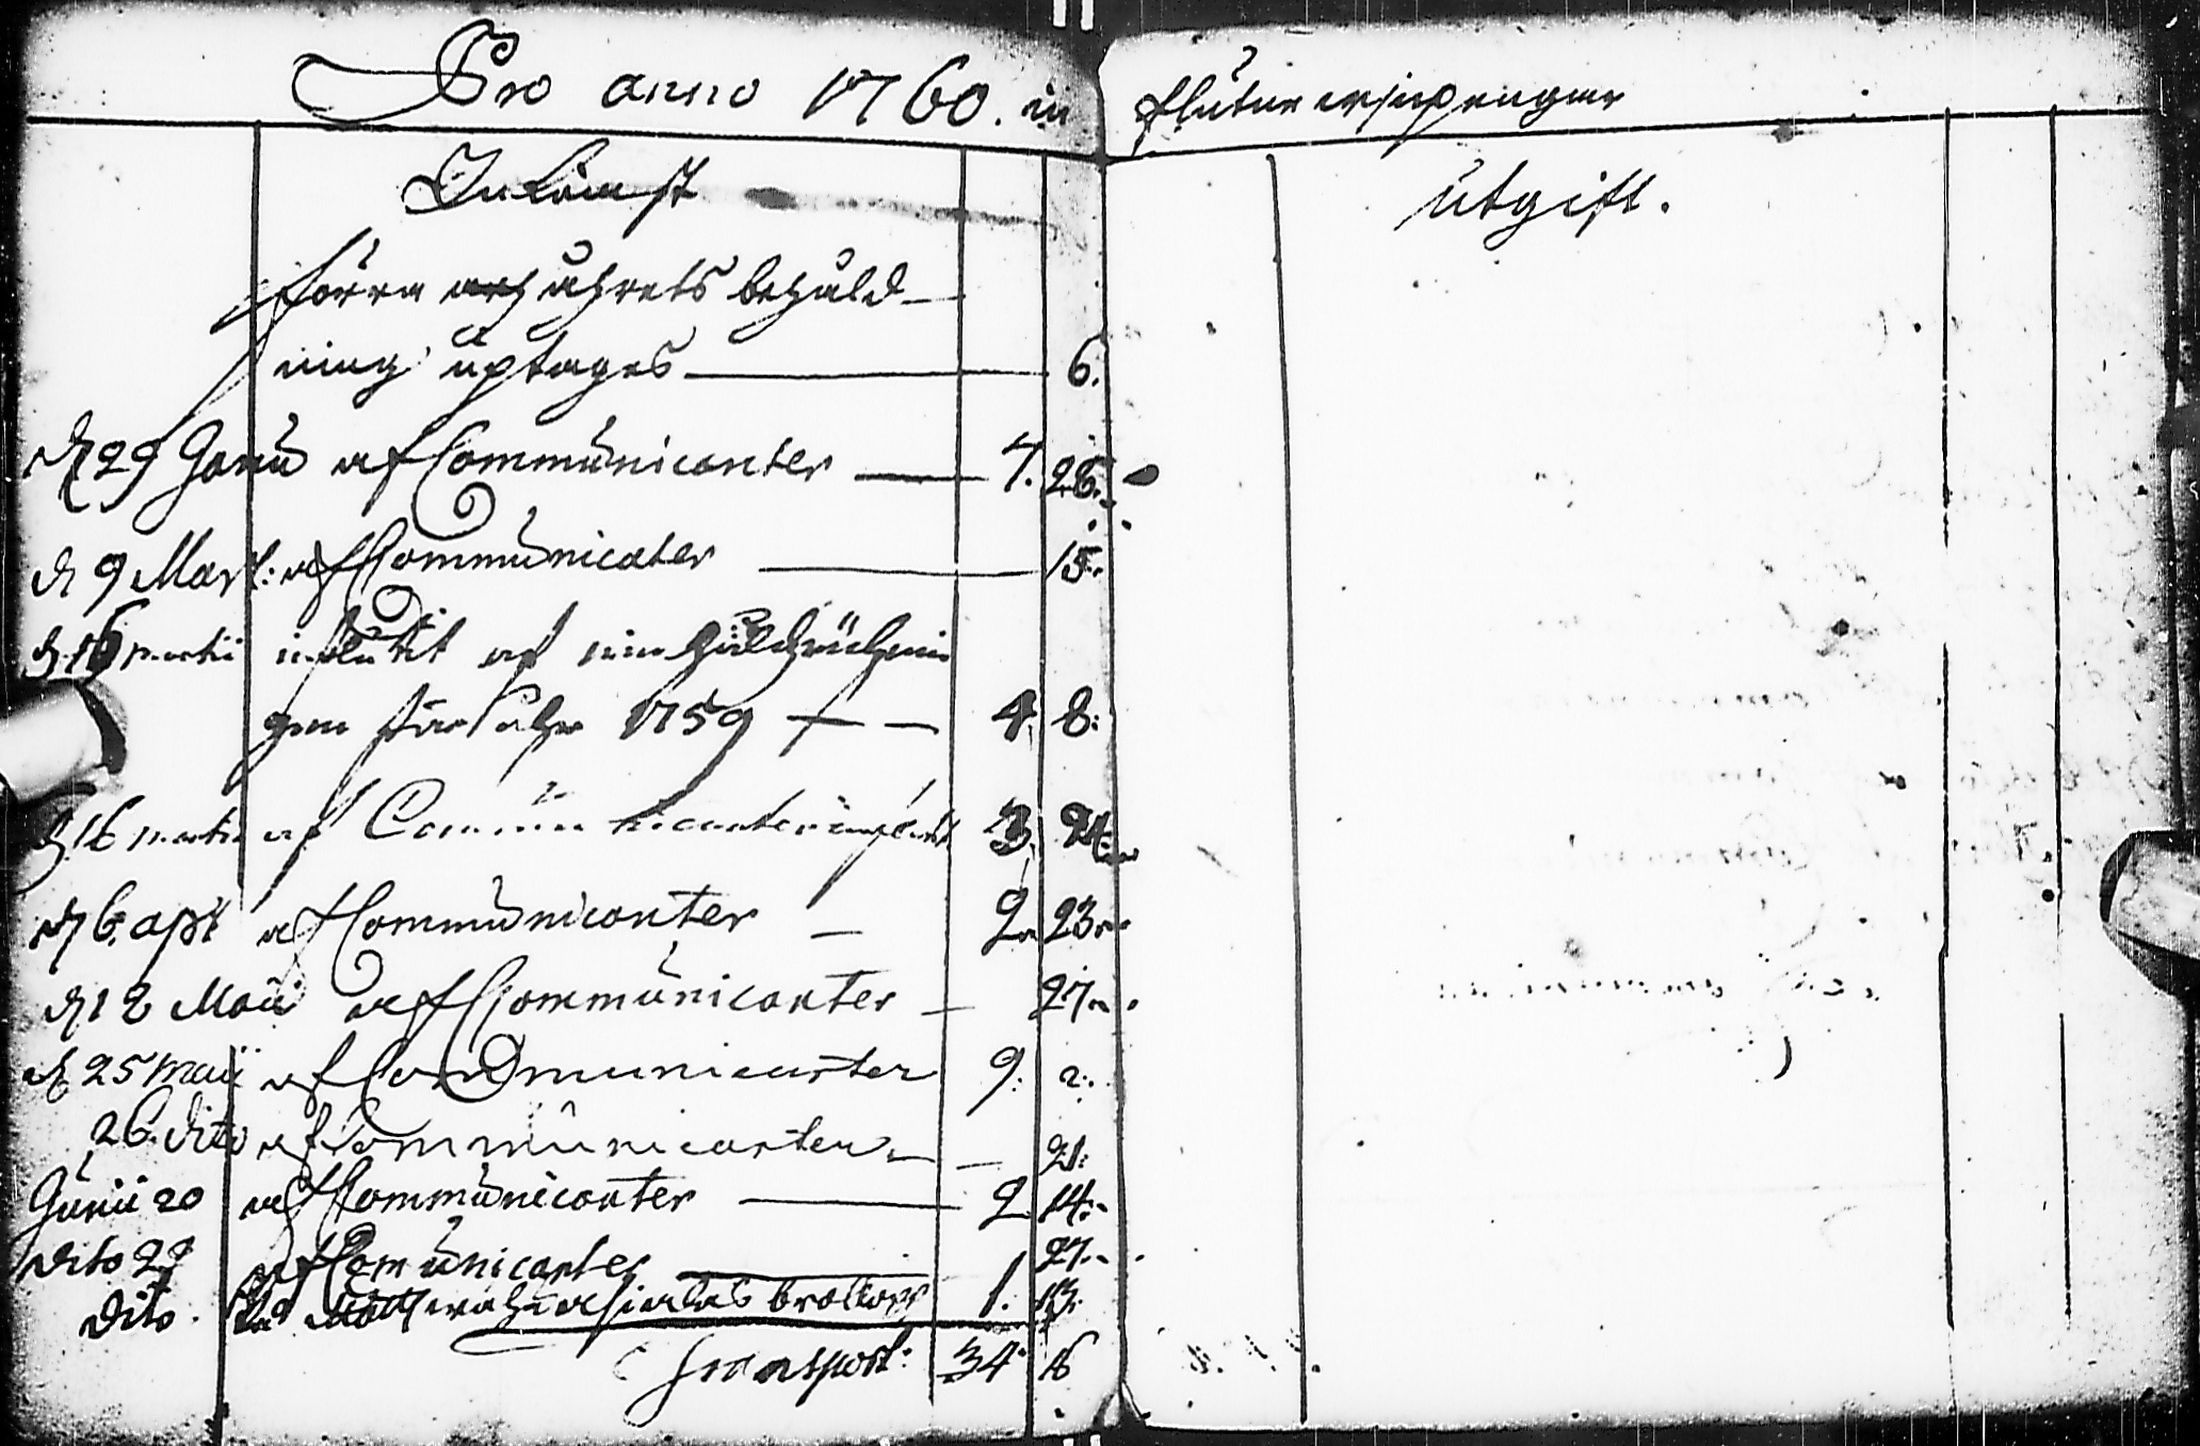 Pro anno 1760. in
flutne
Inkomst
förra åhrets behåld-
ning uptages 6.
d 29 Janu af Communicanter 7. 26.
d 9 Mart: af Communicater 15.
d. 16 martii influtit af
gen för åhr 1759 4. 8:
d. 16 martii af Communicanter influtit 3. 24
d 6. apr af Communicanter 2 23
d 12 Maii af Communicanter 27
d 25 maii af Communicanter 9: 2:
26. dito af Communicanter 21:
Junii 20 af Communicanter 2 14.
dito 29 af Comunicanter 27.
dito. 1. 13.
Transport: 34: 16
utgift.